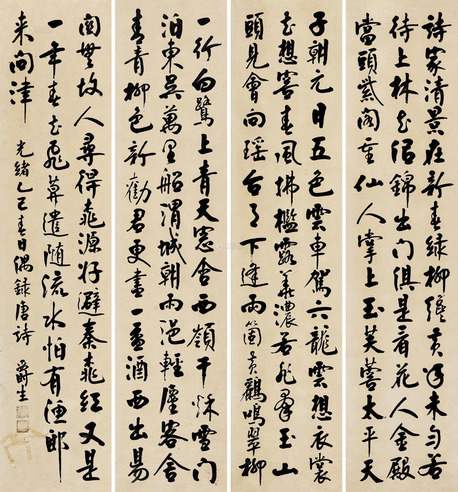 詩家清景在新春綠柳纔黃半未勻若
待上林花似錦出門俱是看花人金殿
當頭紫閣重仙人掌上玉芙蓉太平天
子朝元日五色雲車駕六龍雲想衣裳
花想容春風拂檻露華濃若非羣玉山
頭見會向瑤台月下逢兩箇黃鸝鳴翠柳
一行白鷺上青天窓含西嶺千秋雪門
泊東吳萬里船渭城朝雨浥輕塵客舍
青青柳色新勸君更盡一盃酒西出陽
関無故人尋得桃源好避秦桃紅又是
一年春花飛莫遣隨流水怕有漁郎
来問津 光緒乙巳春日偶録唐詩 爵生